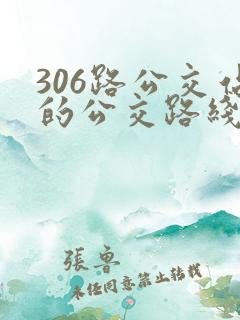 306路公交
的公交路线
張鲁
未经同意禁止转载